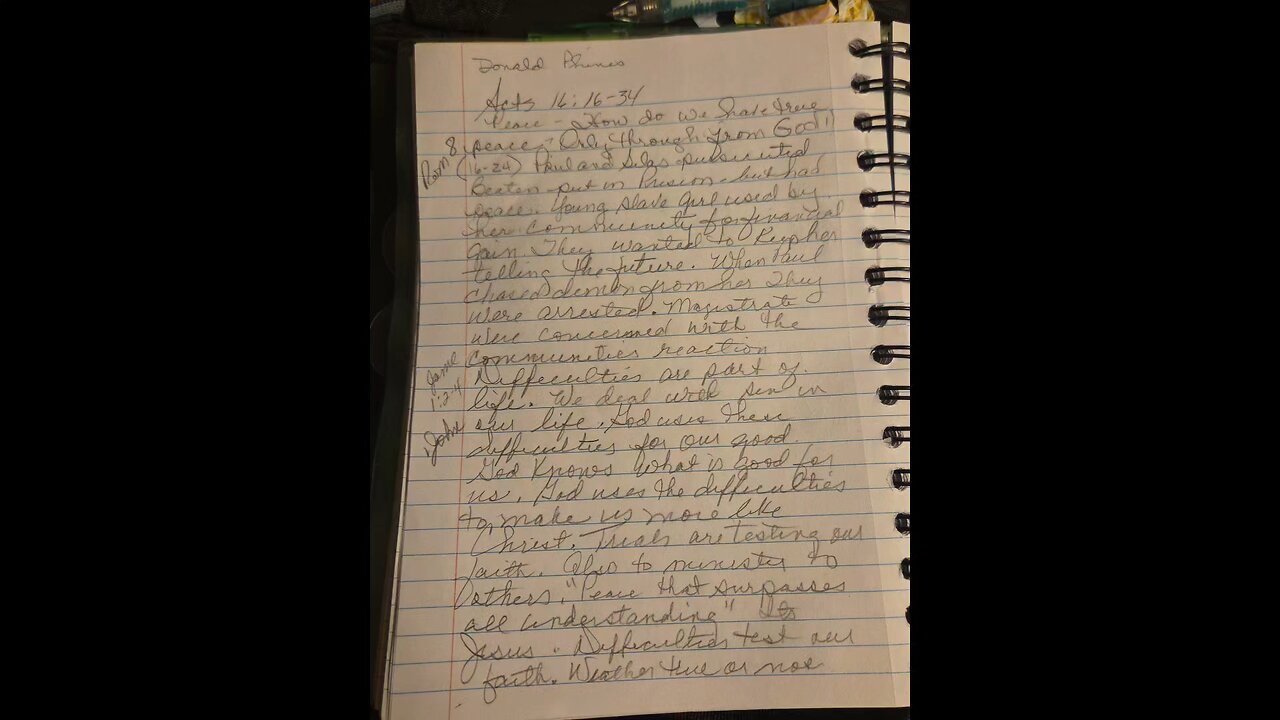 Donald Phines
Acts 16:16-34
Peace - How do we have true
Rom 8 peace - Only through from God!
(16-24) Paul and Silas persecuted
Beaten - put in Prision - but had
peace. Young slave girl used by
ther community for financial
gain. They wanted to keep her
telling the future. When Paul
chased demon from her They
were arrested. Magistrate
were concerned with the
communities reaction
Jame 1:2-4 Difficulties are part of
life. We deal with sin in
John our life. God uses these
difficulties for our good.
God Knows what is good for
us. God uses the difficulties
to make us more like
Christ. Trials are testing our
faith. Also to minister to
others. "Peace that surpasses
all understanding" Is
Jesus. Difficulties test our
faith. Weather true or not